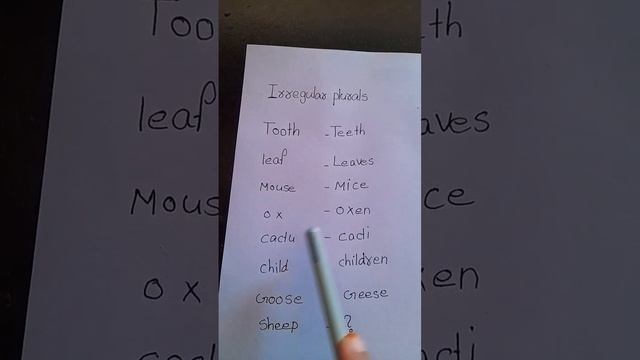 Irregular plurals
Tooth - Teeth
leaf - Leaves
Mouse - Mice
ox - oxen
cactu - cacti
child children
Goose Geese
Sheep - ?